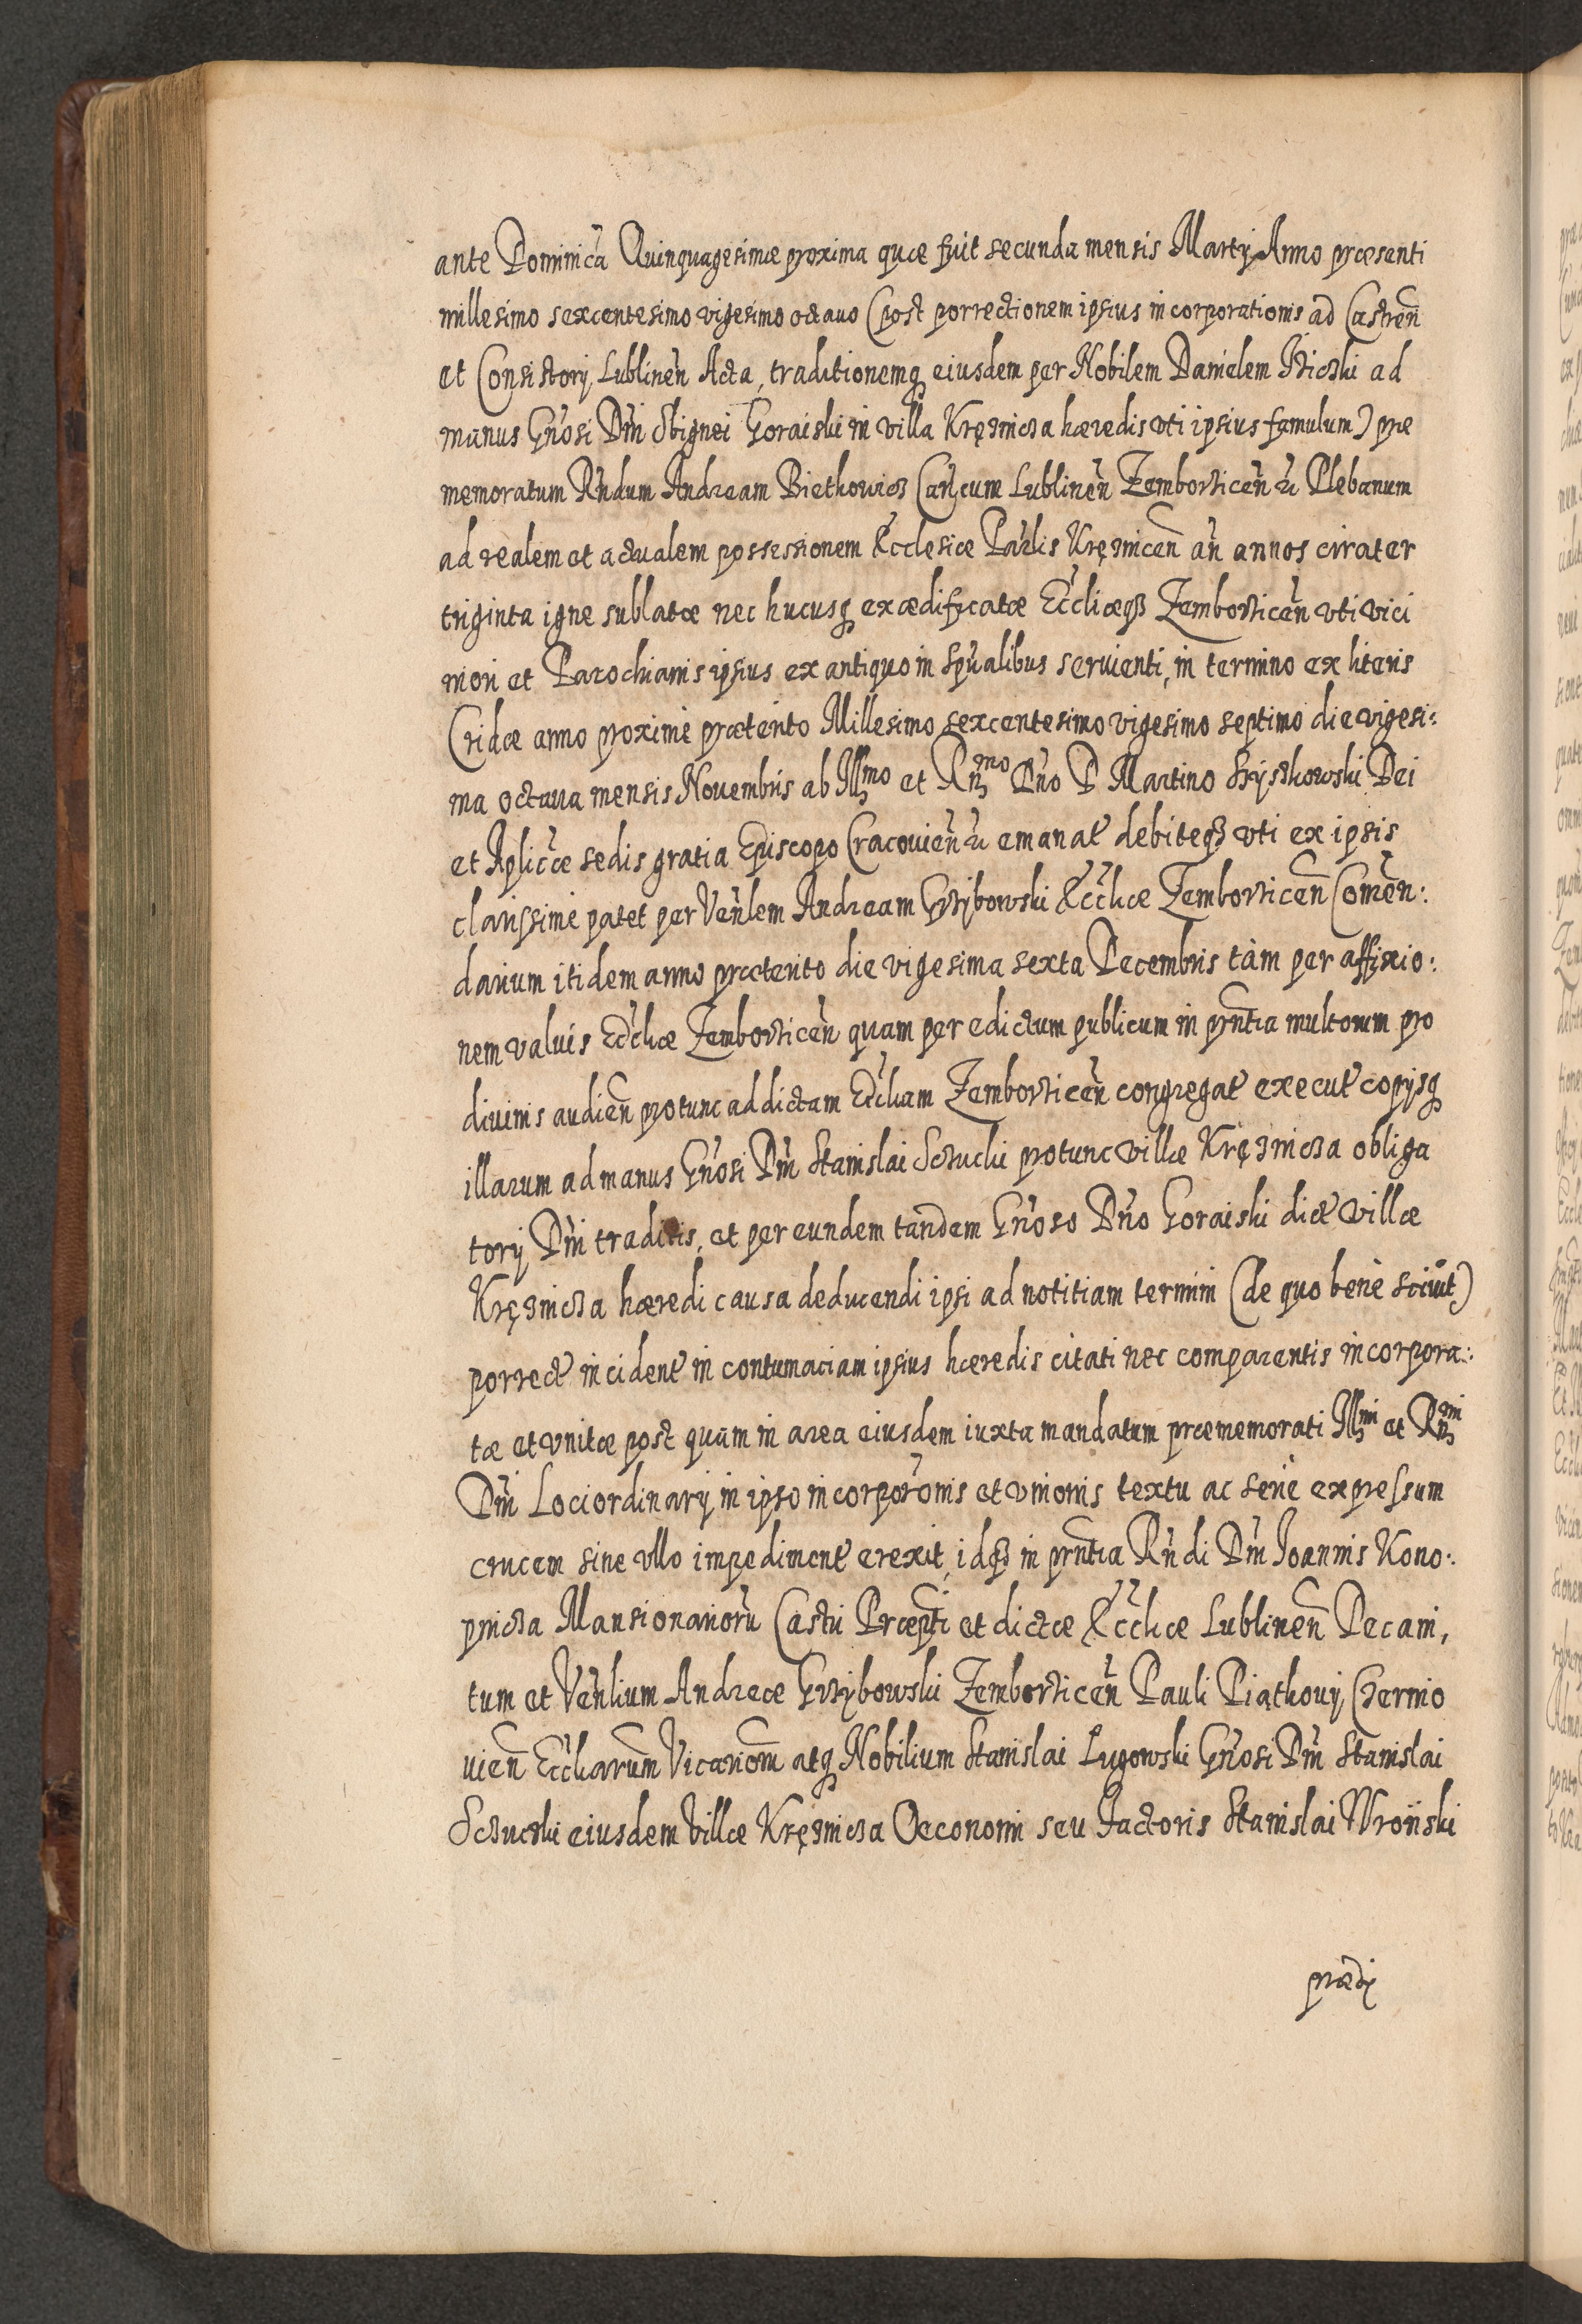 ante Dominicā Quinquagesimæ proxima quæ fuit secunda mensis Martij Anno præsenti
millesimo sexcentesimo vigesimo octauo (post porrectionem ipsius incorporationis ad Castren̄
et Consistorij Lublinen̄ Acta, traditionemq eiusdem per Nobilem Danielem ad
manus Gn̄osi Dn̄i Sbignei Goraiski in villa Kręznicza hæredis vti ipsius famulum) præ
memoratum Rn̄dum Andream Biethowicz Can̄cum Lublinen̄ Zemborzicen̄ Plebanum
ad realem et actualem possessionem Ecclesiæ Par̄lis Kręznicen̄ an̄ annos cirrater
triginta igne sublatæ nec hucusq exædificatæ Eccl̄iæq3 Zemborzicen̄ vti vici
niori et Parochianis ipsius ex antiquo in Spūalibus seruienti, in termino ex literis
Cridæ anno proximè præterito Millesimo sexcentesimo vigesimo septimo die vigesi:
ma octaua mensis Nouembris ab Illmo et Rn̄mo Dn̄o D Martino Szyszkowski Dei
et Aplicæ sedis gratia Episcopo Cracouien̄ emanat debiteq3 vti ex ipsis
clarissimè patet per Ven̄lem Andream Grzybowski Eccl̄iæ Zemborzicen̄ Comen̄:
darium itidem anno præterito die vigesima sexta Decembris tàm per affixio:
nem valuis Eccl̄iæ Zemborzicen̄ quam per edictum publicum in prn̄tia multorum pro
diuinis audien̄ protunc ad dictam Eccl̄iam Zemborzicen̄ congregat execut copijsq
illarum ad manus Gn̄osi Dn̄i Stanislai protunc villæ Kręznicza obliga
torij Dn̄i traditis, et per eundem tandem Gn̄oso Dn̄o Goraiski dictæ villæ
Kręznicza hæredi causa deducendi ipsi ad notitiam termini (de quo benè sciuit)
porrect incident in contumaciam ipsius hæredis citati nec comparentis incorpora:
tæ et vnitæ post quàm in area eiusdem iuxta mandatum præmemorati Illmi et Rn̄mi
Dn̄i Loci ordinarij in ipso incorporōnis et vnionis textu ac serie expressum
crucem sine vllo impediment erexit, idq3 in prn̄tia Rn̄di Dn̄i Joannis Kono:
pnicza Mansionariorū Castri Præpti et dictæ Eccl̄iæ Lublinen̄ Decani,
tum et Ven̄lium Andreæ Grzybowski Zemborzicen̄ Pauli Piąthouij Czernio
uien̄ Eccl̄iarum Vicariorum atq Nobilium Stanislai Lugowski Gn̄osi Dn̄i Stanislai
eiusdem villæ Kręznicza Oeconomi seu Factoris Stanislai Wroński
præd